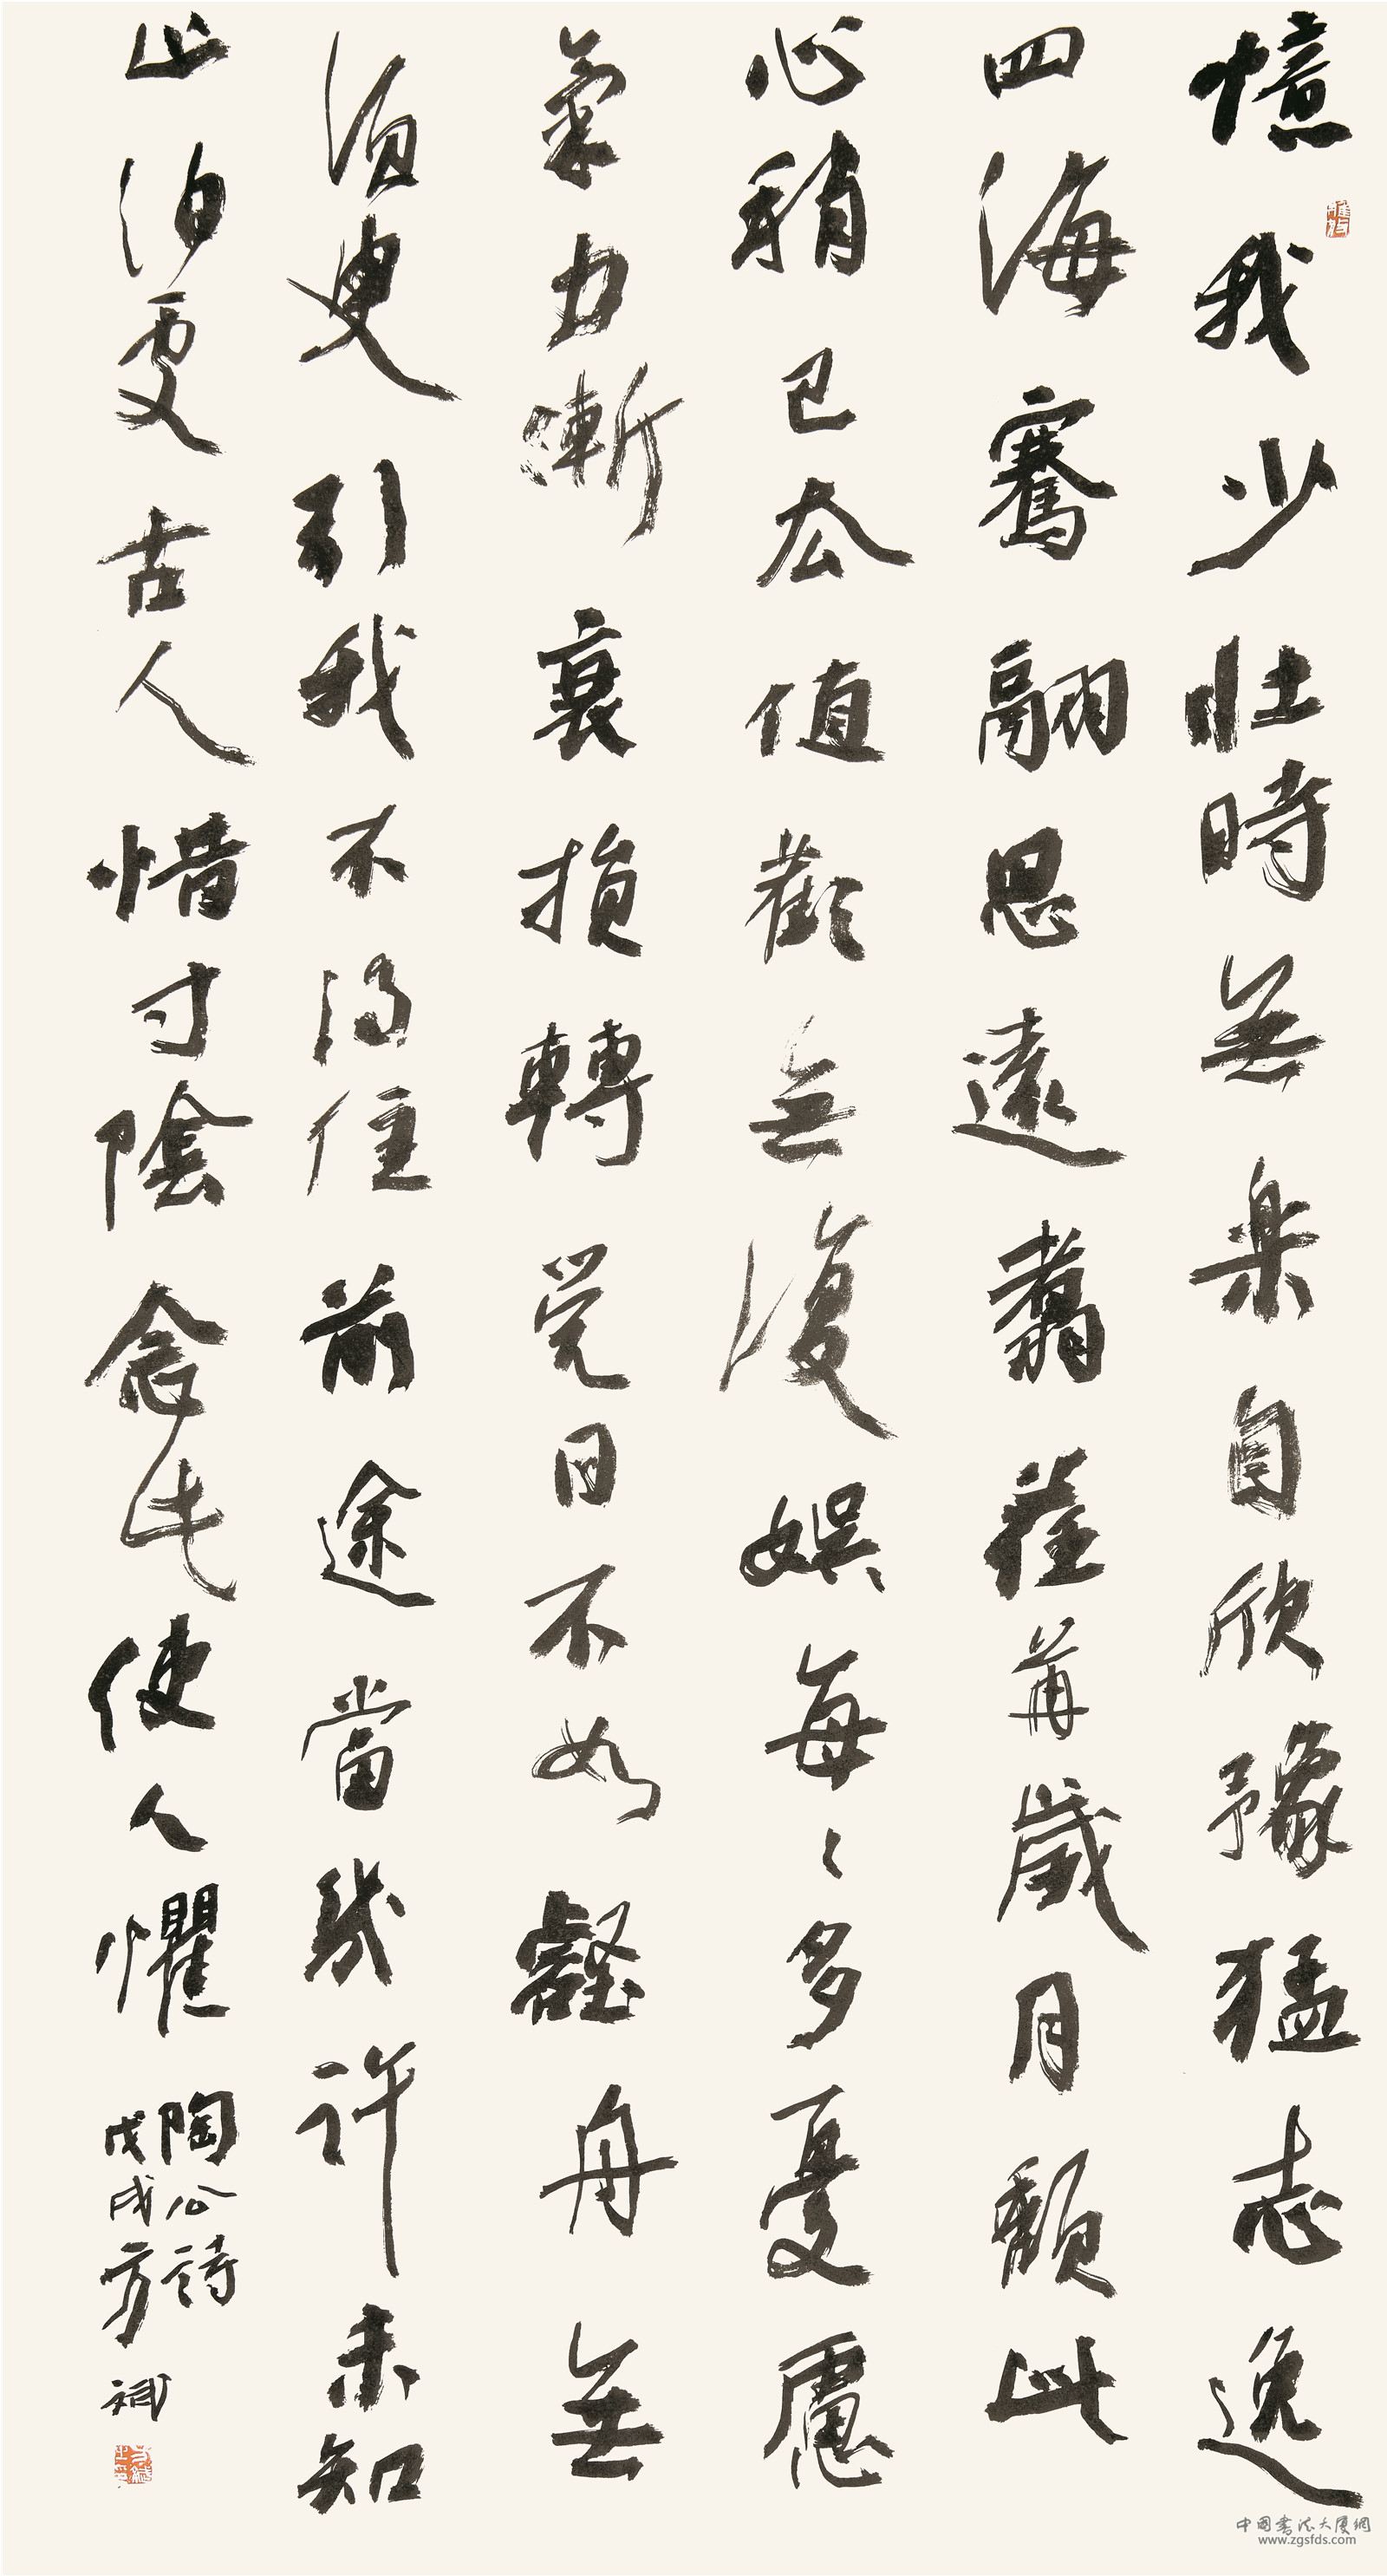 憶我少壯時無楽自欣豫猛志逸
四海騫翮思遠翥荏苒歲月頹此
心稍已厺值歡無復娛每〻多憂慮
氣力漸衰損轉覚日不如壑舟無
須臾引我不得住前途當幾許未知
止泊處古人惜寸陰念此使人懼
陶公詩
戊戌方斌
中國書法大廈網
www.zgsfds.com